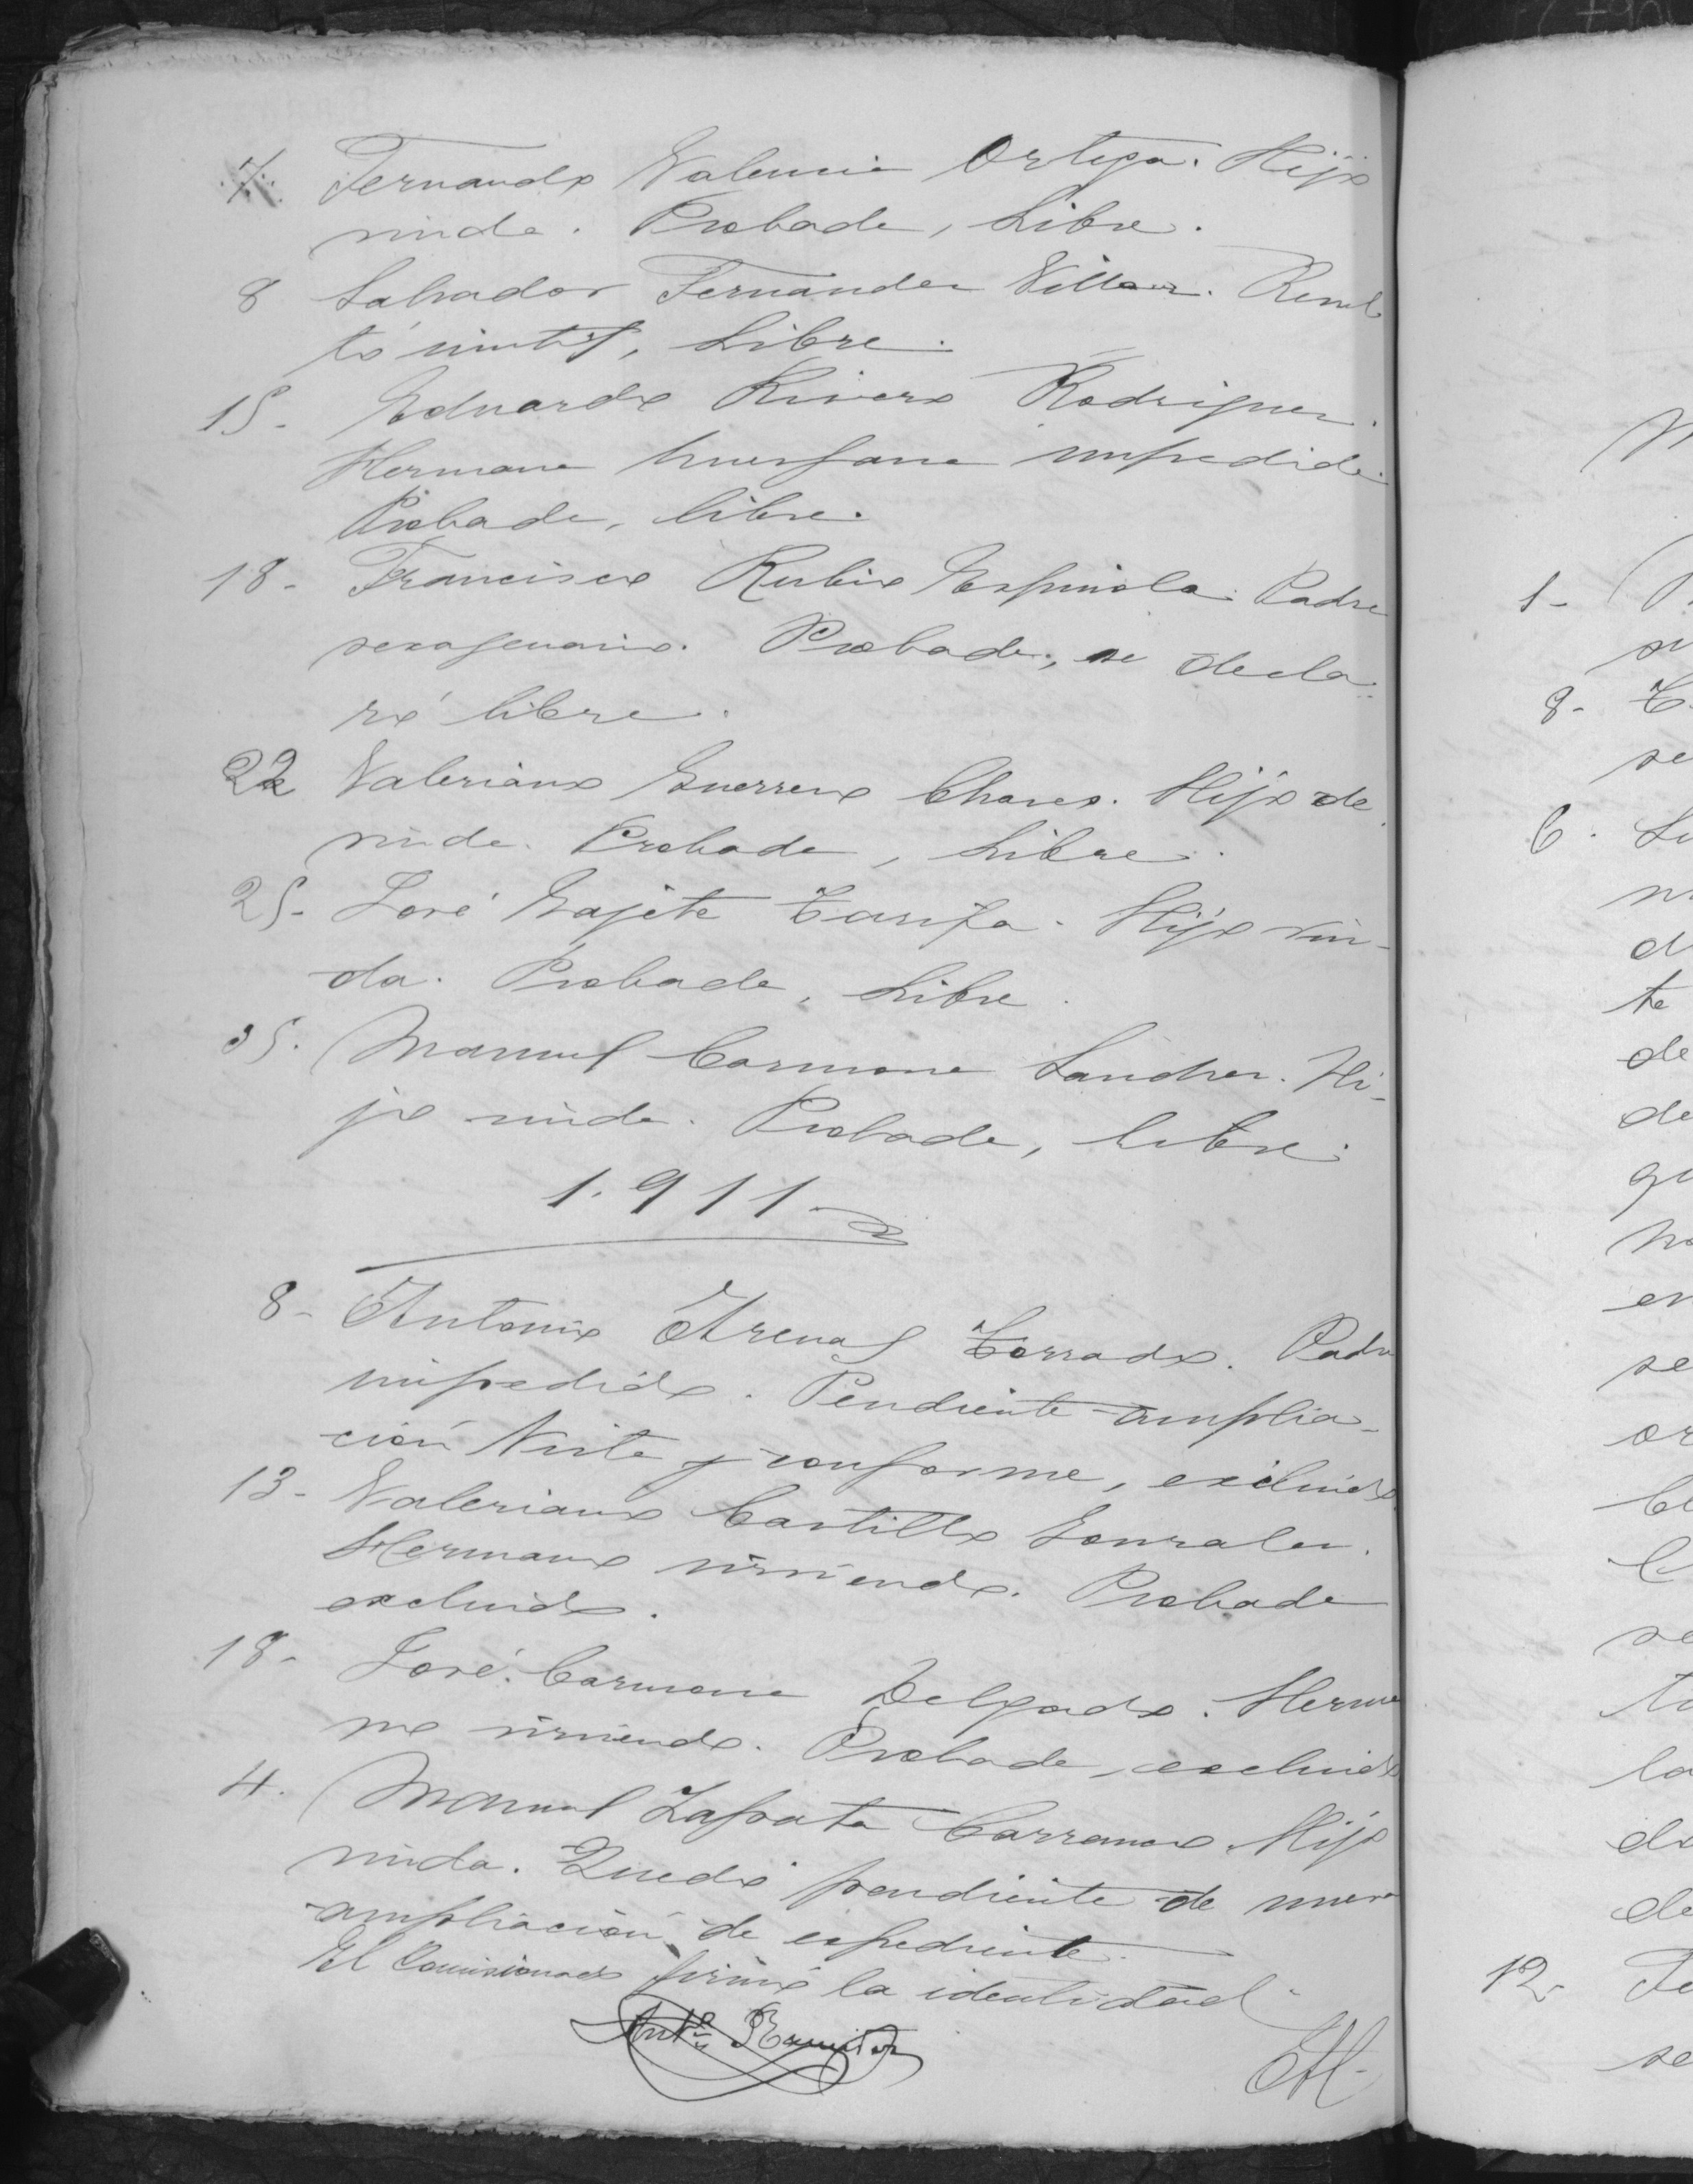 7. Fernando Valencia Ortega. Hijo
viuda. Probado, Libre.
8 Salvador Fernandez Villar. Resul
tó inutil, Libre.
15- Eduardo Rivero Rodriguez.
Hermano huerfano impedido.
Probado, libre.
18- Francisco Rubio Espinola. Padre
sexagenario. Probado, se decla
ró libre.
22 Valeriano Guerrero Chaves. Hijo de
viuda. Probado, Libre.
25- José Gajete Tarifa. Hijo viu-
da. Probado, Libre.
35. Manuel Carmona Sanchez. Hi-
jo viuda. Probado, libre.
1.911
8- Antonio Arenas Torrado. Padre
impedido. Pendiente amplia-
ción Vista y conforme, excluido
13- Valeriano Castillo Gonzalez.
Hermano sirviendo. Probado
excluido.
18- José Carmona Delgado. Herma
no sirviendo. Probado, excluido
4. Manuel Zapata Carranco. Hijo
viuda. Quedó pendiente de nueva
ampliación de expediente.
El Comisionado firmó la identidad
Antº Ramirez
1-
8-
6.
12-